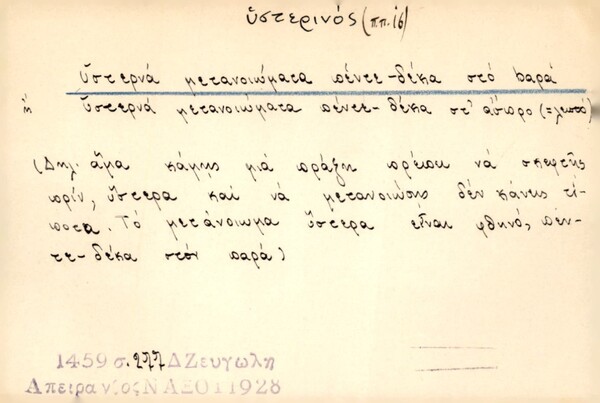 ὕστερινός (ππ. ιϐ)
ὕστερνά μετανοιώματα πέντε-δέκα στό bαρά
ἤ ὕστερνά μετανοιώματα πέντε-δέκα στ' ἄσπρο (=λεπτό)
(Δηλ. ἅμα κάμῃς μιά πρᾶξη πρέπει νά σκεφτῇς
πρίν, ὕστερα καί νά μετανοιώσῃς δέν κάνεις τί-
ποτα. Τό μετάνοιωμα ὕστερα εἶναι φθηνό, πέν-
τε-δέκα στόν παρά)
1459 σ. 277 Δ Ζευγωλη
Απειρανθος ΝΑΞΟΥ 1928